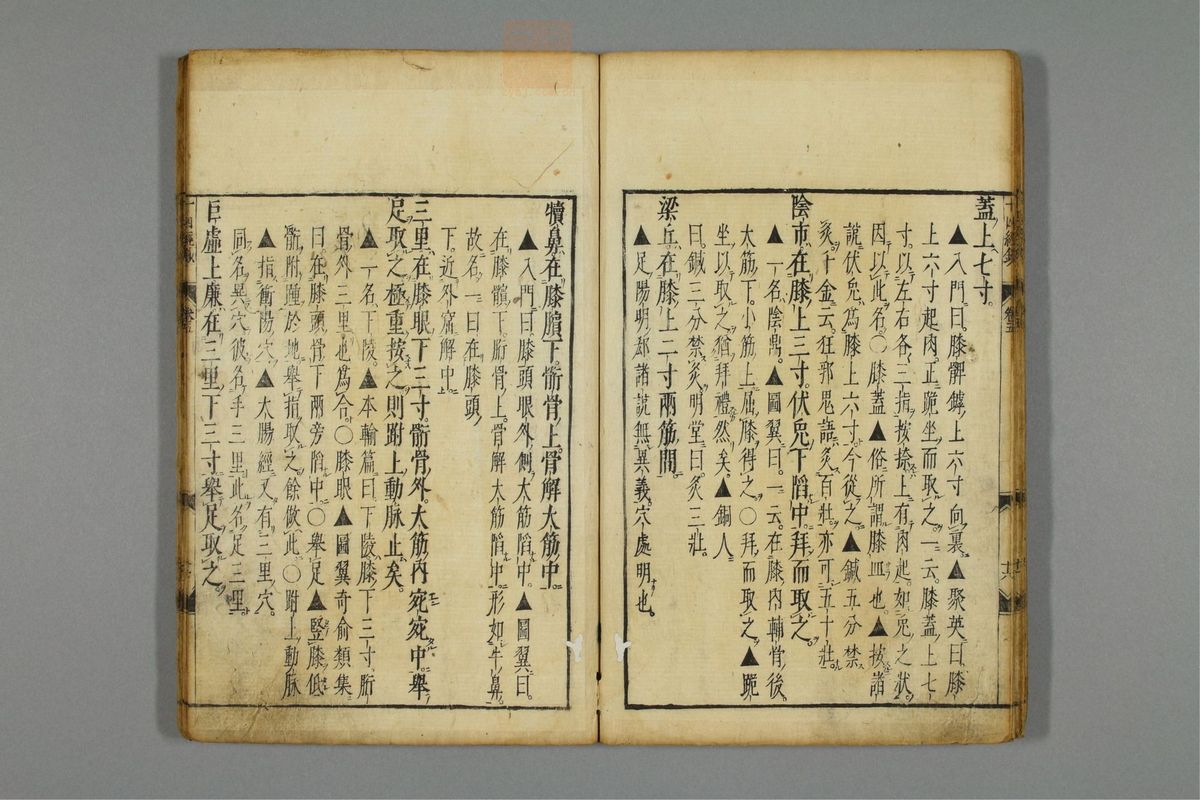 蓋上七寸
▲入門曰膝髀罅上六寸向裏▲聚英曰膝
上六寸起肉正跪坐而取之一云膝蓋上七
寸以左右各三指按捺上有肉起如兎之狀
因以此名○膝蓋▲俗所謂膝皿也▲按諸
說伏兎爲膝上六寸今從之▲鍼五分禁
灸千金云狂邪鬼語灸百壯亦可五十壯
陰市在膝上三寸伏兎下陷中拜而取之
▲一名陰鼎▲圖翼曰一云在膝內輔骨後
大筋下小筋上屈膝得之○拜而取之▲跪
坐以取之猶拜禮然矣▲銅人
曰鍼三分禁灸明堂曰灸三壯
梁丘在膝上二寸兩筋間
▲足陽明郄諸說無異義穴處明也
犢鼻在膝臏下骱骨上骨解大筋中
▲入門曰膝頭眼外側大筋陷中▲圖翼曰
在膝臏下胻骨上骨解大筋陷中形如牛鼻
故名一曰在膝頭
下近外䆲解中
三里在膝眼下三寸骱骨外大筋內宛宛中舉
足取之極重按之則跗上動脉止矣
▲一名下陵▲本輸篇曰下陵膝下三寸胻
骨外三里也爲合○膝眼▲圖翼奇俞類集
曰在膝頭骨下兩旁陷中○舉足▲竪膝低
骱附踵於地舉指取之餘倣此○跗上動脉
▲指衝陽穴▲大腸經又有三里穴
同名異穴彼名手三里此名足三里
巨虛上廉在三里下三寸舉足取之